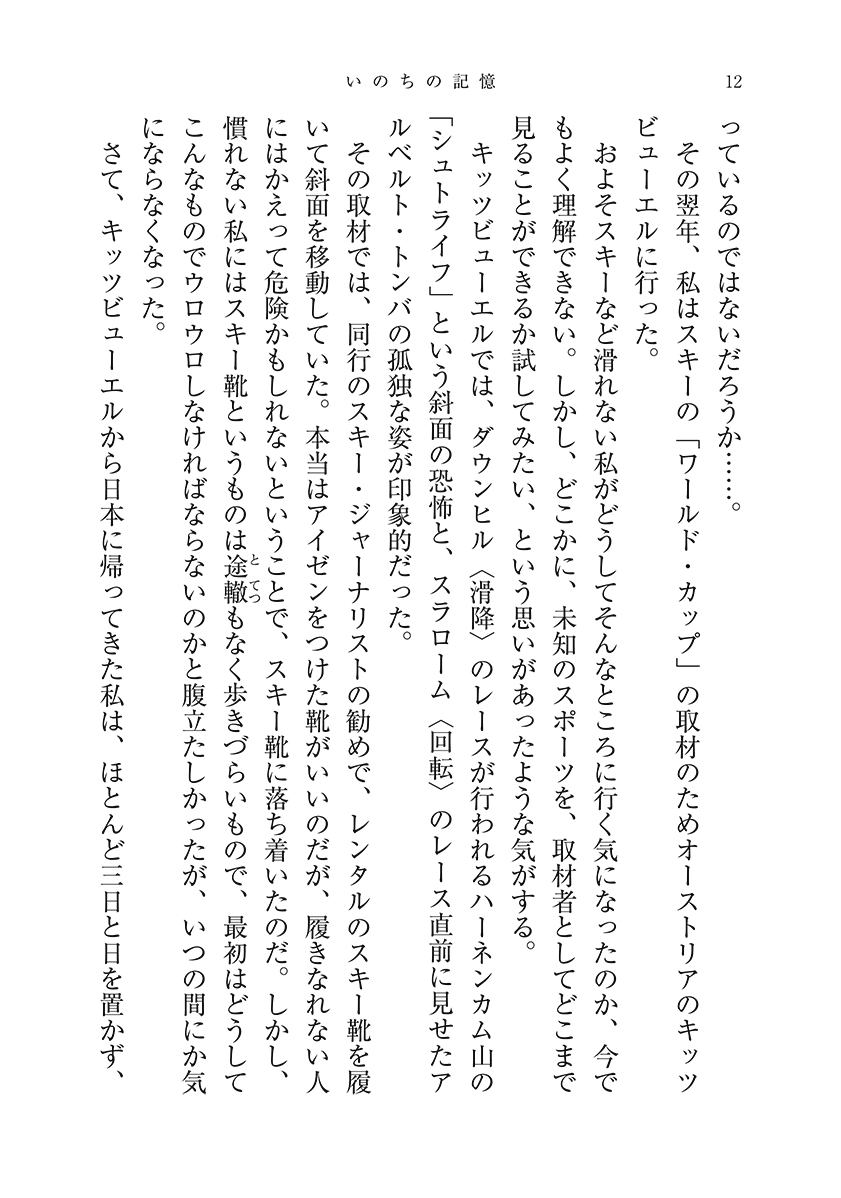 いのちの記憶
12
っているのではないだろうか……。
その翌年、私はスキーの「ワールド・カップ」の取材のためオーストリアのキッツ
ビューエルに行った。
およそスキーなど滑れない私がどうしてそんなところに行く気になったのか、今で
もよく理解できない。しかし、どこかに、未知のスポーツを、取材者としてどこまで
見ることができるか試してみたい、という思いがあったような気がする。
キッツビューエルでは、ダウンヒル〈滑降〉のレースが行われるハーネンカム山の
「シュトライフ」という斜面の恐怖と、スラローム〈回転〉のレース直前に見せたア
ルベルト・トンバの孤独な姿が印象的だった。
その取材では、同行のスキー・ジャーナリストの勧めで、レンタルのスキー靴を履
いて斜面を移動していた。本当はアイゼンをつけた靴がいいのだが、履きなれない人
にはかえって危険かもしれないということで、スキー靴に落ち着いたのだ。しかし、
慣れない私にはスキー靴というものは途轍もなく歩きづらいもので、最初はどうして
とてつ
こんなものでウロウロしなければならないのかと腹立たしかったが、いつの間にか気
にならなくなった。
さて、キッツビューエルから日本に帰ってきた私は、ほとんど三日と日を置かず、